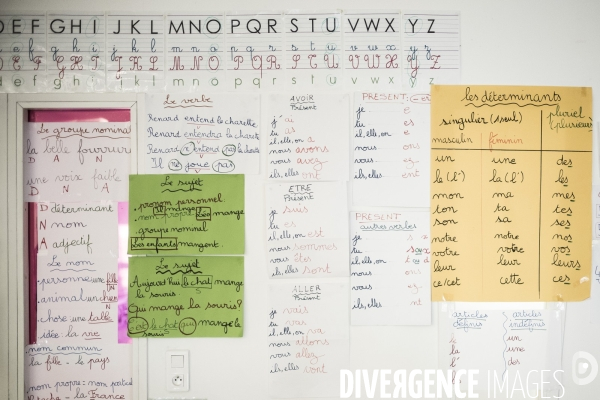 DEF GHI JKL MNO PQR STU VWX YZ
def ghi jkl mno pqr stu vwx yz
DEF GHI JKL MNO PQR STU VWX YZ
def ghi jkl mno pqr stu vwx yz
Le groupe nominal
la belle fourrure
D A N
une voix faible
D N A
D déterminant
N nom
A adjectif
Le nom
personne une fille
N
animal un chien
N
chose une table
idée la vie
nom commun
la fille - le pays
nom propre - nom particulier
la France
Le verbe
Renard entend le charette
Renard entendra le charette
Renard n'entend pas le charette
Il ne joue pas
Le sujet
pronom personnel:
Il mange
nom propre: Léon mange
groupe nominal
Les enfants mangent.
Le sujet
Aujourd'hui le chat mange
la souris
Qui mange la souris?
c'est le chat qui mange la
souris
AVOIR
Présent
j'ai
tu as
il, elle, on a
nous avons
vous avez
ils, elles ont
ETRE
Présent
je suis
tu es
il, elle, on est
nous sommes
vous êtes
ils, elles sont
ALLER
Présent
je vais
tu vas
il, elle, on va
nous allons
vous allez
ils, elles vont
PRESENT: er
je e
tu es
il, elle, on e
nous ons
vous ez
ils, elles ent
PRESENT
autres verbes
je s x e
tu s x
il, elle, on t d
nous ons
vous ez
ils, elles ent
les déterminants
singulier (1 seul) pluriel (plusieurs)
masculin féminin
un une des
le (l') la (l') les
mon ma mes
ton ta tes
son sa ses
notre notre nos
votre votre vos
leur leur leurs
ce/cet cette ces
articles définis
le
la
l'
les
articles indéfinis
un
une
des
DIVERGENCE IMAGES